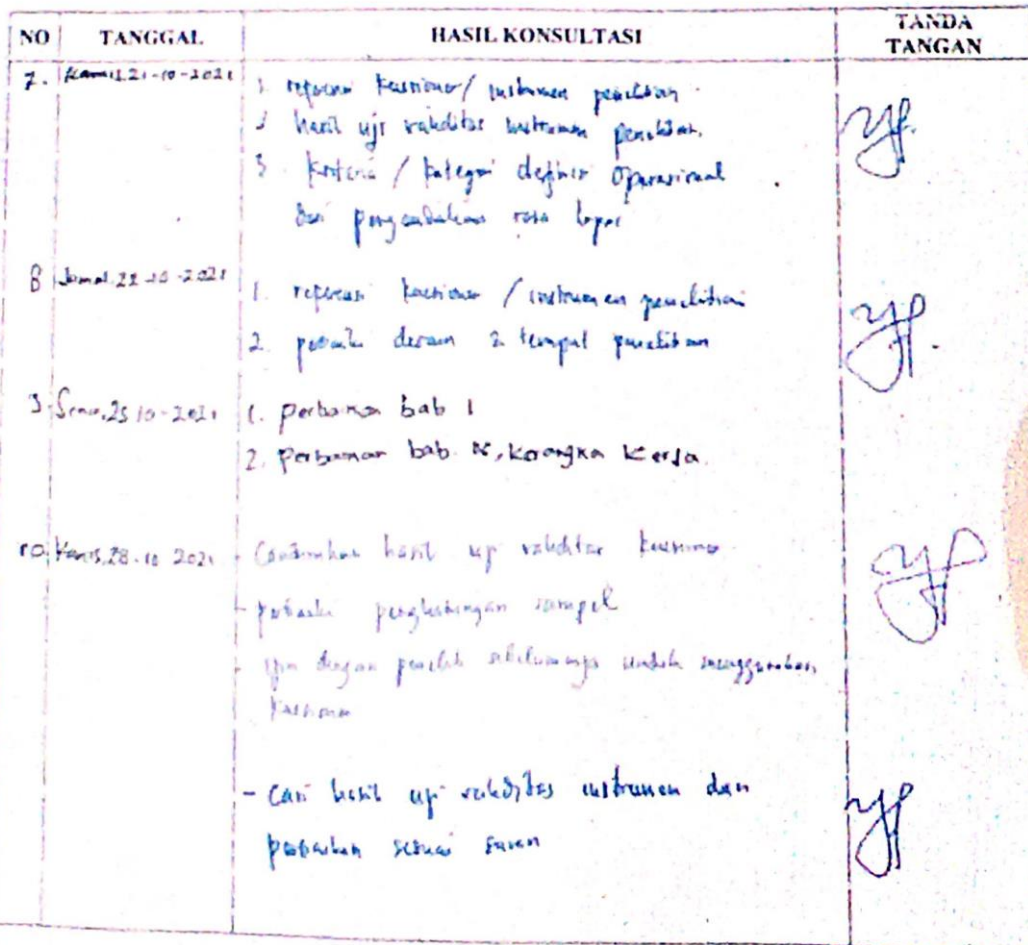 NO TANGGAL HASIL KONSULTASI TANDA TANGAN
7. Kamis, 21-10-2021 1. referensi kuesioner / instrumen penelitian
2 hasil uji validitas instrumen penelitian.
3. kriteria / kategori definisi operasional
dari pengendalian rasa lapar
8 Jumat, 22-10-2021 1. referensi kuesioner / instrumen penelitian
2. perbaiki desain & tempat penelitian
9. Senin, 25 10-2021 1. perbaikan bab 1
2. Perbaikan bab IV, kerangka kerja.
10. Kamis, 28-10 2021 - Cantumkan hasil uji validitas kuesioner
- perbaiki penghitungan sampel
- ijin dengan peneliti sebelumnya untuk menggunakan
kuesioner
- Cari hasil uji validitas instrumen dan
perbaikan sesuai saran